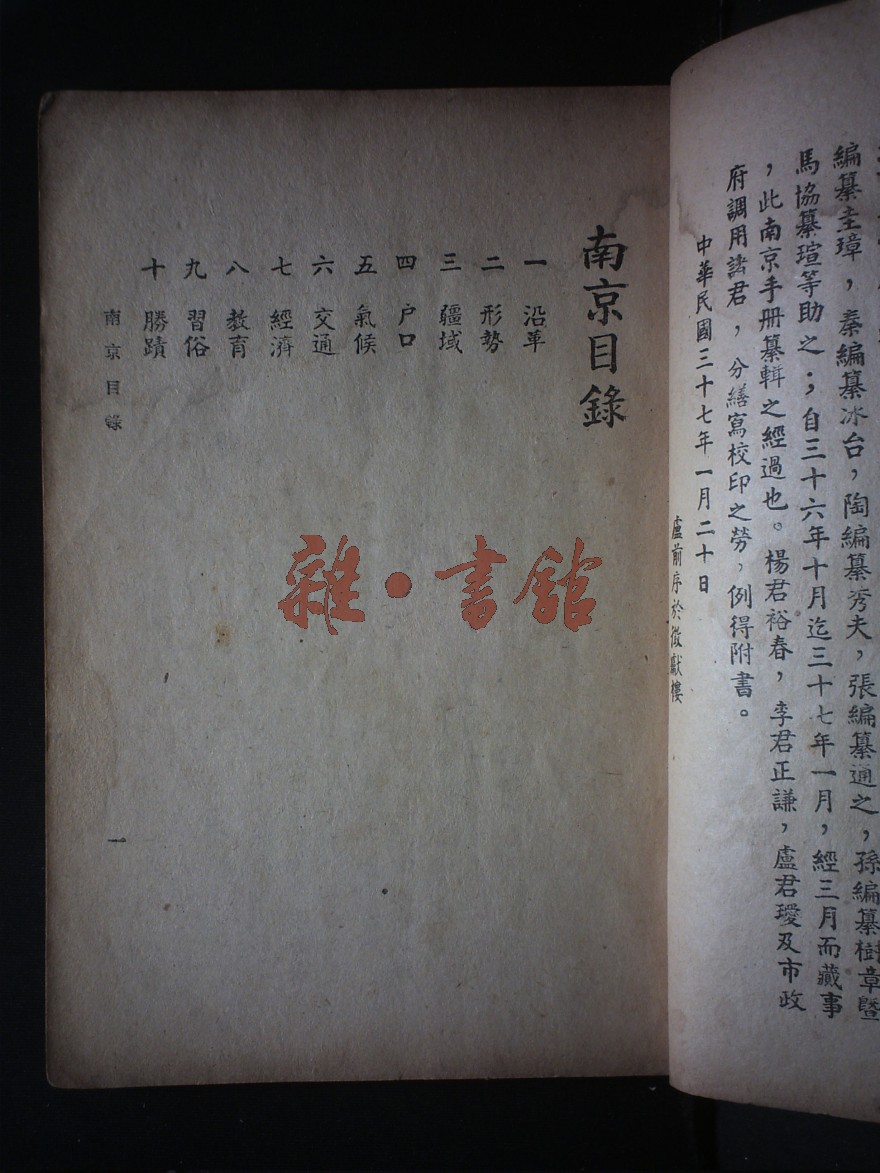 編纂圭璋，秦編纂冰台，陶編纂秀夫，張編纂通之，孫編纂樹章暨
馬協纂瑄等助之；自三十六年十月迄三十七年一月，經三月而蕆事
，此南京手册纂輯之經過也。楊君裕春，李君正謙，盧君璦及市政
府調用諸君，分繕寫校印之勞，例得附書。
中華民國三十七年一月二十日
盧前序於徵獻樓
南京目錄
一 沿革
二 形勢
三 疆域
四 户口
五 氣候
六 交通
七 經濟
八 教育
九 習俗
十 勝蹟
南京目錄
一
雜·書館